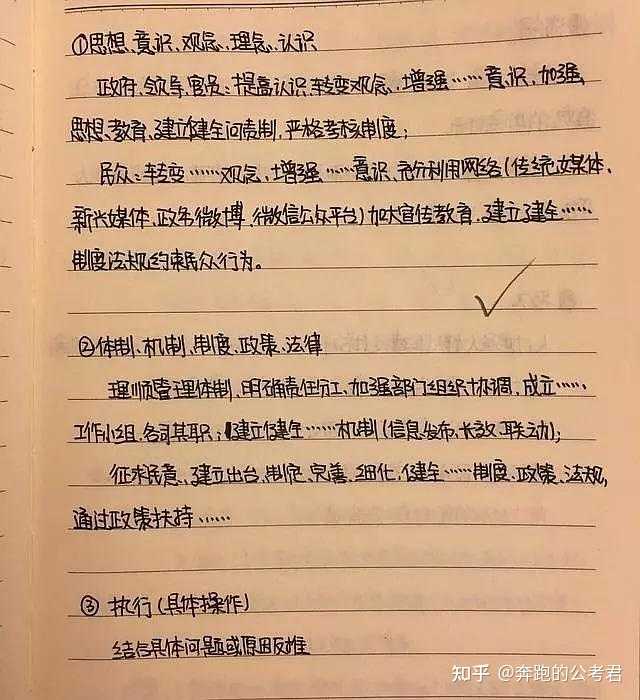 ①思想、意识、观念、理念、认识
政府、领导、官员：提高认识、转变观念，增强……意识，加强
思想、教育、建立健全问责制，严格考核制度；
民众：转变……观念，增强……意识、充分利用网络(传统媒体、
新兴媒体、政务微博、微信公众平台)加大宣传教育、建立健全……
制度法规约束民众行为。
②体制、机制、制度、政策、法律
理顺管理体制、明确责任分工、加强部门组织协调，成立……
工作小组、各司其职；建立健全……机制(信息发布、长效、联动)；
征求民意、建立出台、制定、完善、细化、健全……制度、政策、法规，
通过政策扶持……
③ 执行(具体操作)
结合具体问题或原因反推
知乎 @奔跑的公考君